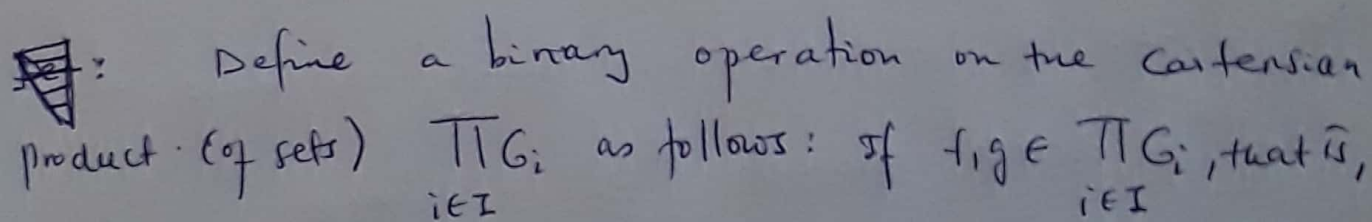 : Define a binary operation on the Cartensian
product (of sets) ∏ Gᵢ as follows: If f,g ∈ ∏ Gᵢ, that is,
i∈I i∈I